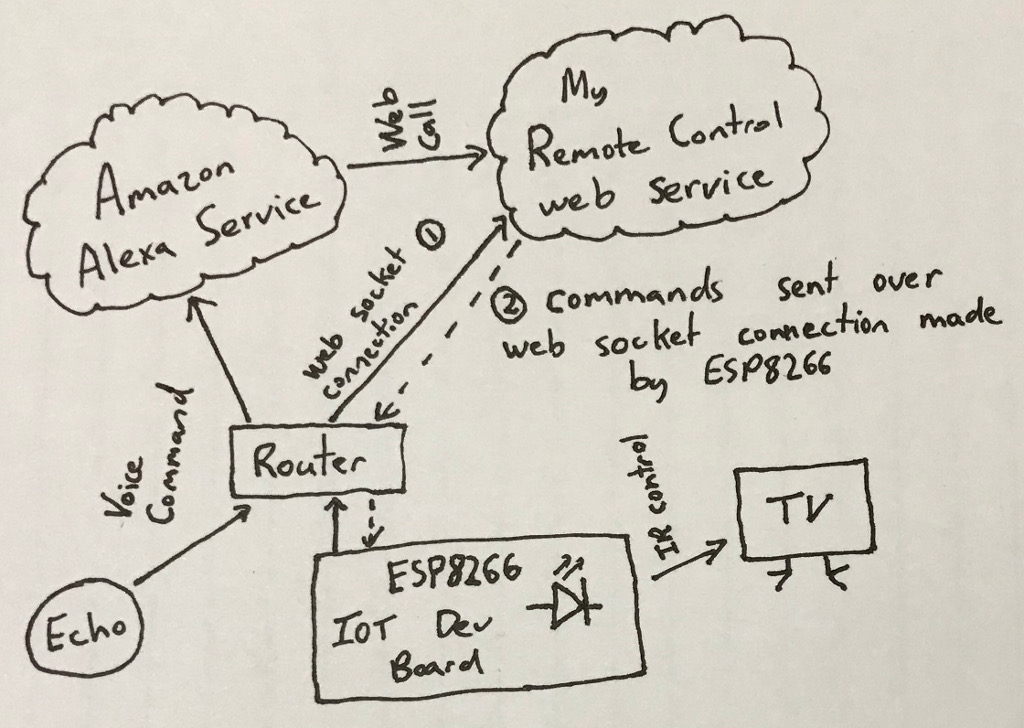 My
Remote Control
web service
Web
Call
Amazon
Alexa Service
web socket ①
connection
② commands sent over
web socket connection made
by ESP8266
Voice
Command
Router
IR control
TV
ESP8266
IOT Dev
Board
Echo